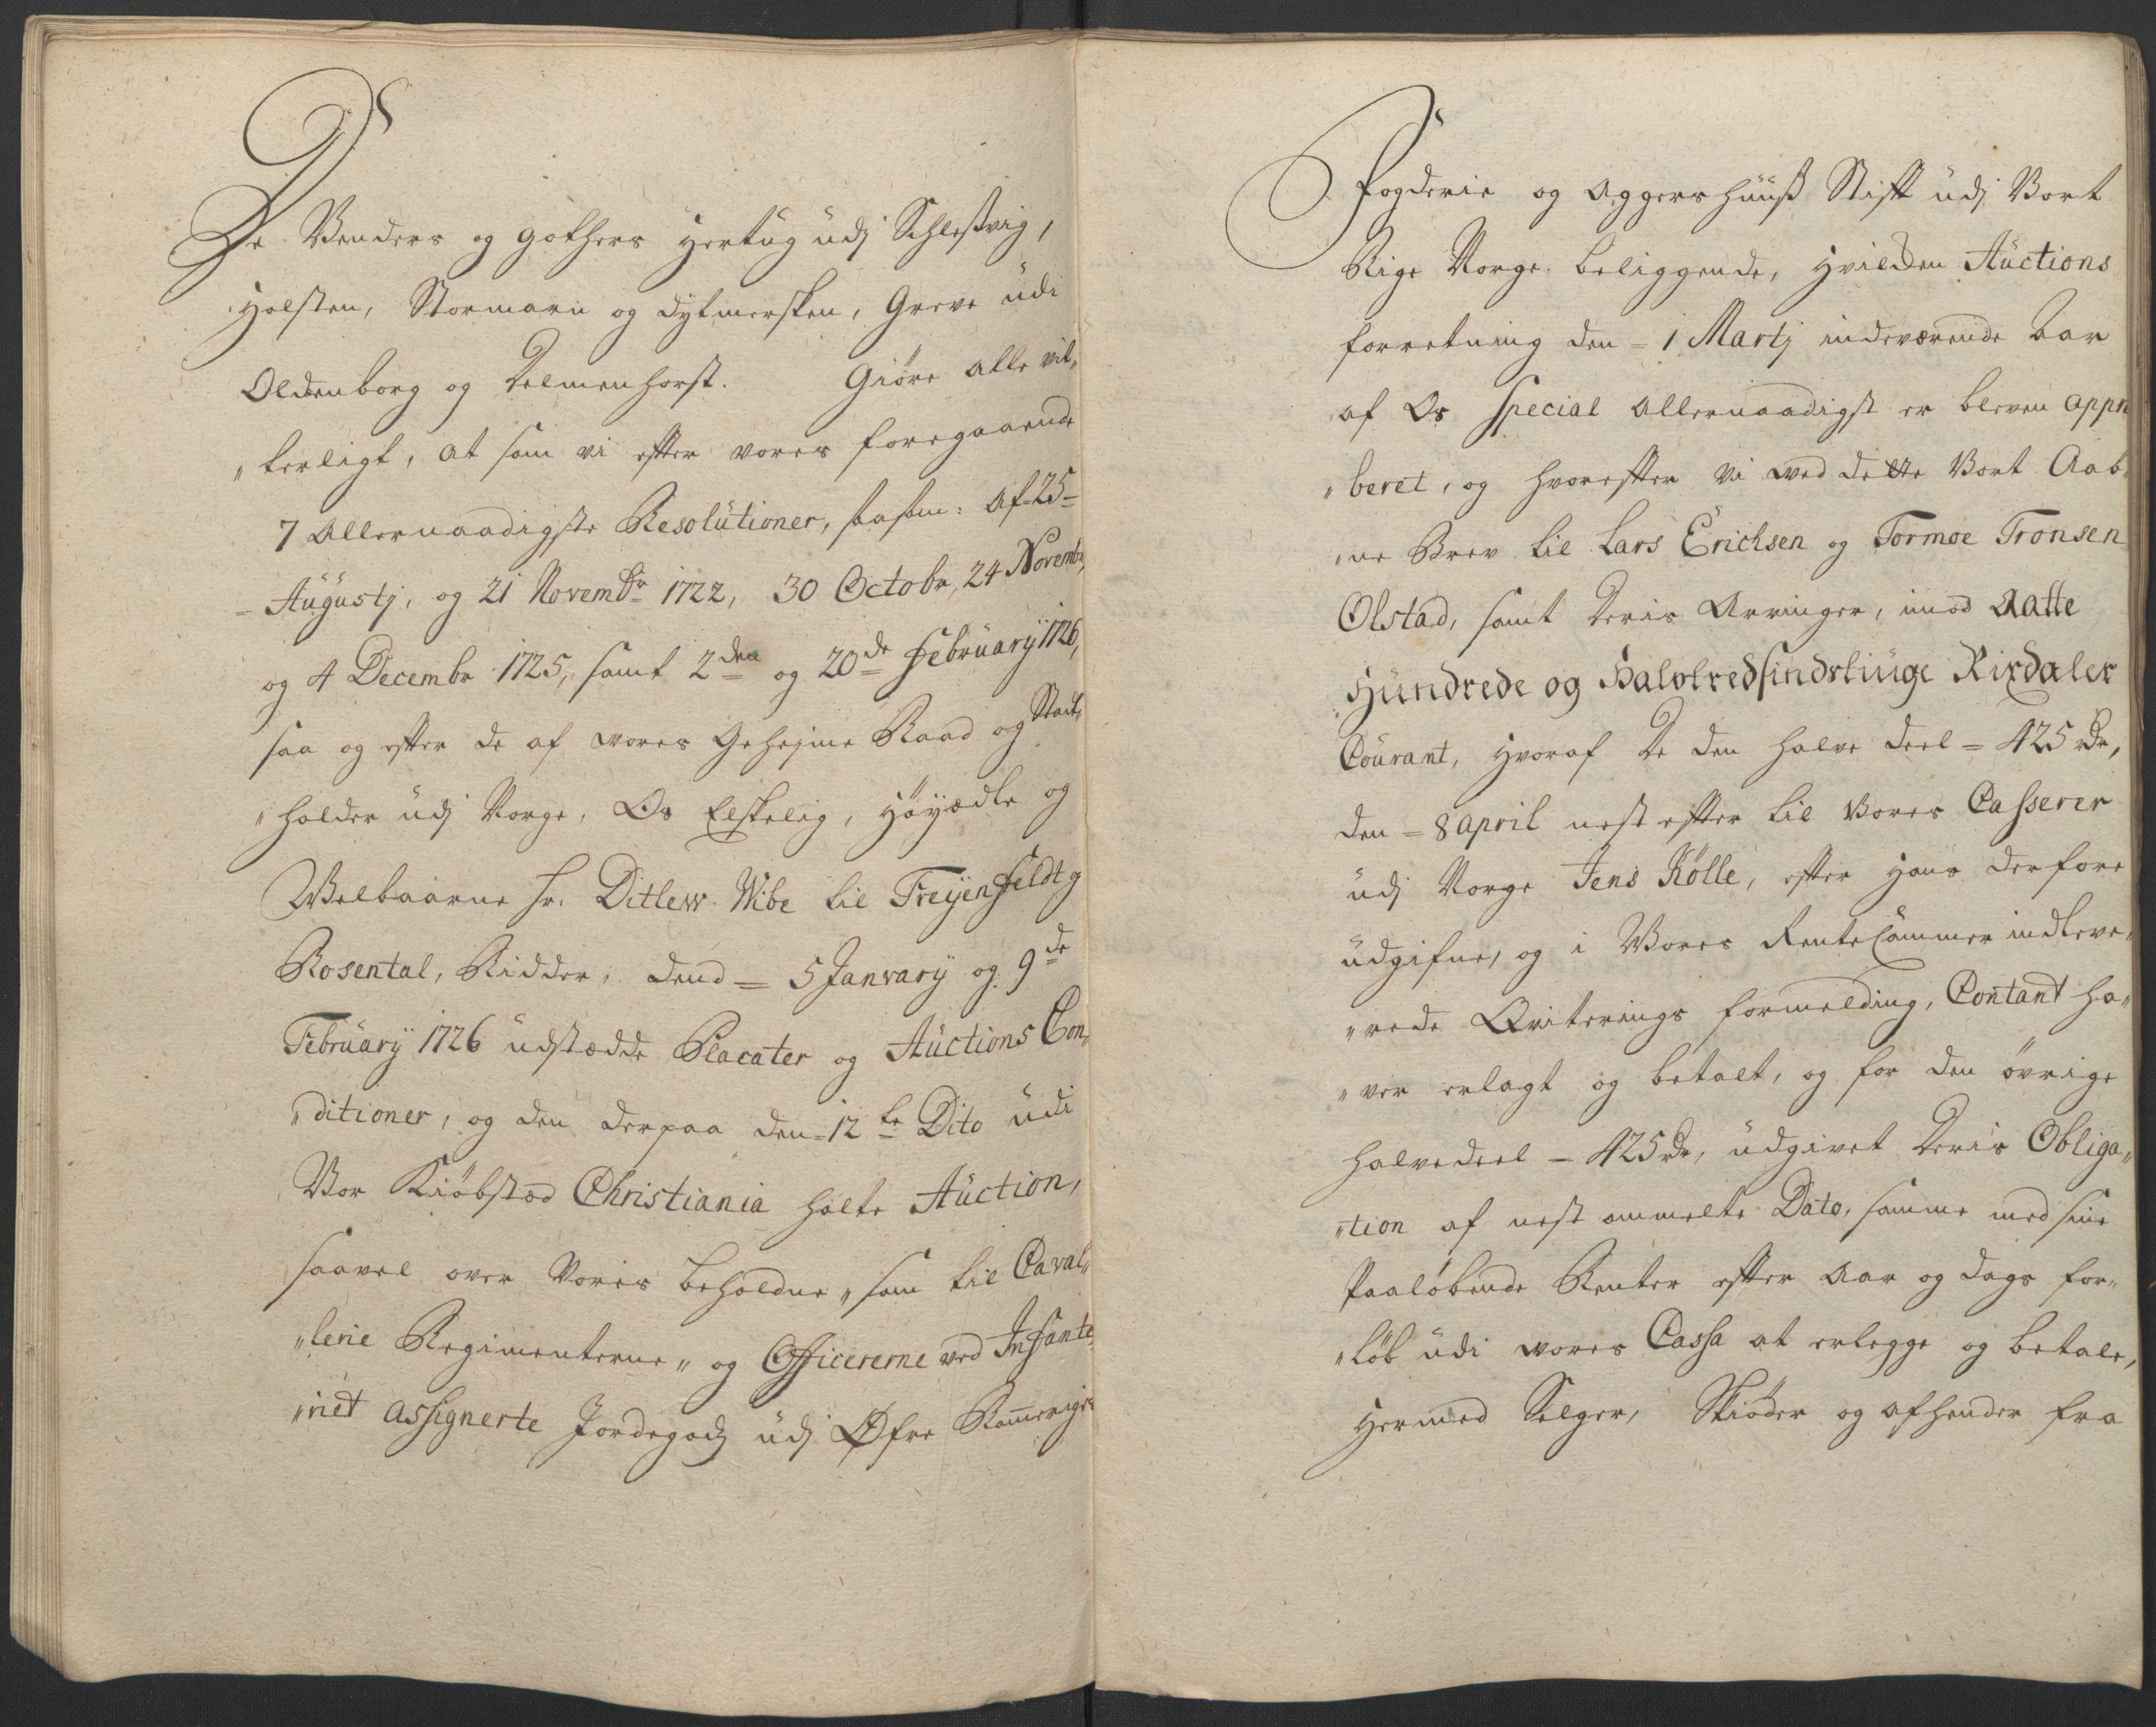 De Venders og Gothers Hertug udj Schleßvig,
Holsten, Stormarn og Dytmersken, Greve udi
Oldenborg og Delmenhorst. Giöre alle vit„
„terligt, at som vi efter vores foregaaende
7 Allernaadigste Resolutioner, saasom: Af 25=
= Augustj, og 21 Novembr 1722, 30 Octobr, 24 Novembr,
og 4 Decembr 1725, samt 2den og 20de Februarÿ 1726,
saa og efter de af vores Geheime Raad og Stadt„
„holder udj Norge, Os Elskelig, Höÿædle og
Welbaarne Hr. Ditlew Wibe til Freÿenfeldt og
Rosental, Ridder, dend = 5 Janvarÿ og 9de
Februarÿ 1726 udstædde Placater og Auctions Con„
„ditioner, og den derpaa den = 12te Dito udi
Vor Kiöbstæd Christiania holte Auction,
saavel over Vores beholdne „ som til Caval„
„lerie Regimenterne „ og Officererne ved Infante„
„riet assignerte Jordegodz udj Øfre Romeriges
Fogderie og Aggershuuß Stift udj Vort
Rige Norge beliggende, hvilken Auctions
forretning den = 1 Martj indeværende Aar
af Os Special Allernaadigst er bleven appro
„beret, og hvorefter vi ved dette Vort Aab„
„ne Brev til Lars Erichsen og Tormoe Tronsen
Olstad, samt deris Arvinger, imod Aatte
Hundrede og Halvtredsindstiuge Rixdaler
Courant, hvoraf de den halve deel = 425 rdr,
den = 8 april nest efter til Vores Casserer
udj Norge Jens Kölle, efter hans derfore
udgifne, og i Vores RenteCammer indleve„
„rede Qviterings formelding, Contant ha„
„ver erlagt og betalt, og for den övrige
halvedeel = 425 rdr, udgivet deris Obliga„
„tion af nest ommelte Dato, samme med sine
Paalöbende Renter efter Aar og dags for„
„löb udi vores Cassa at erlegge og betale,
Hermed Selger, Skiöder og afhender fra